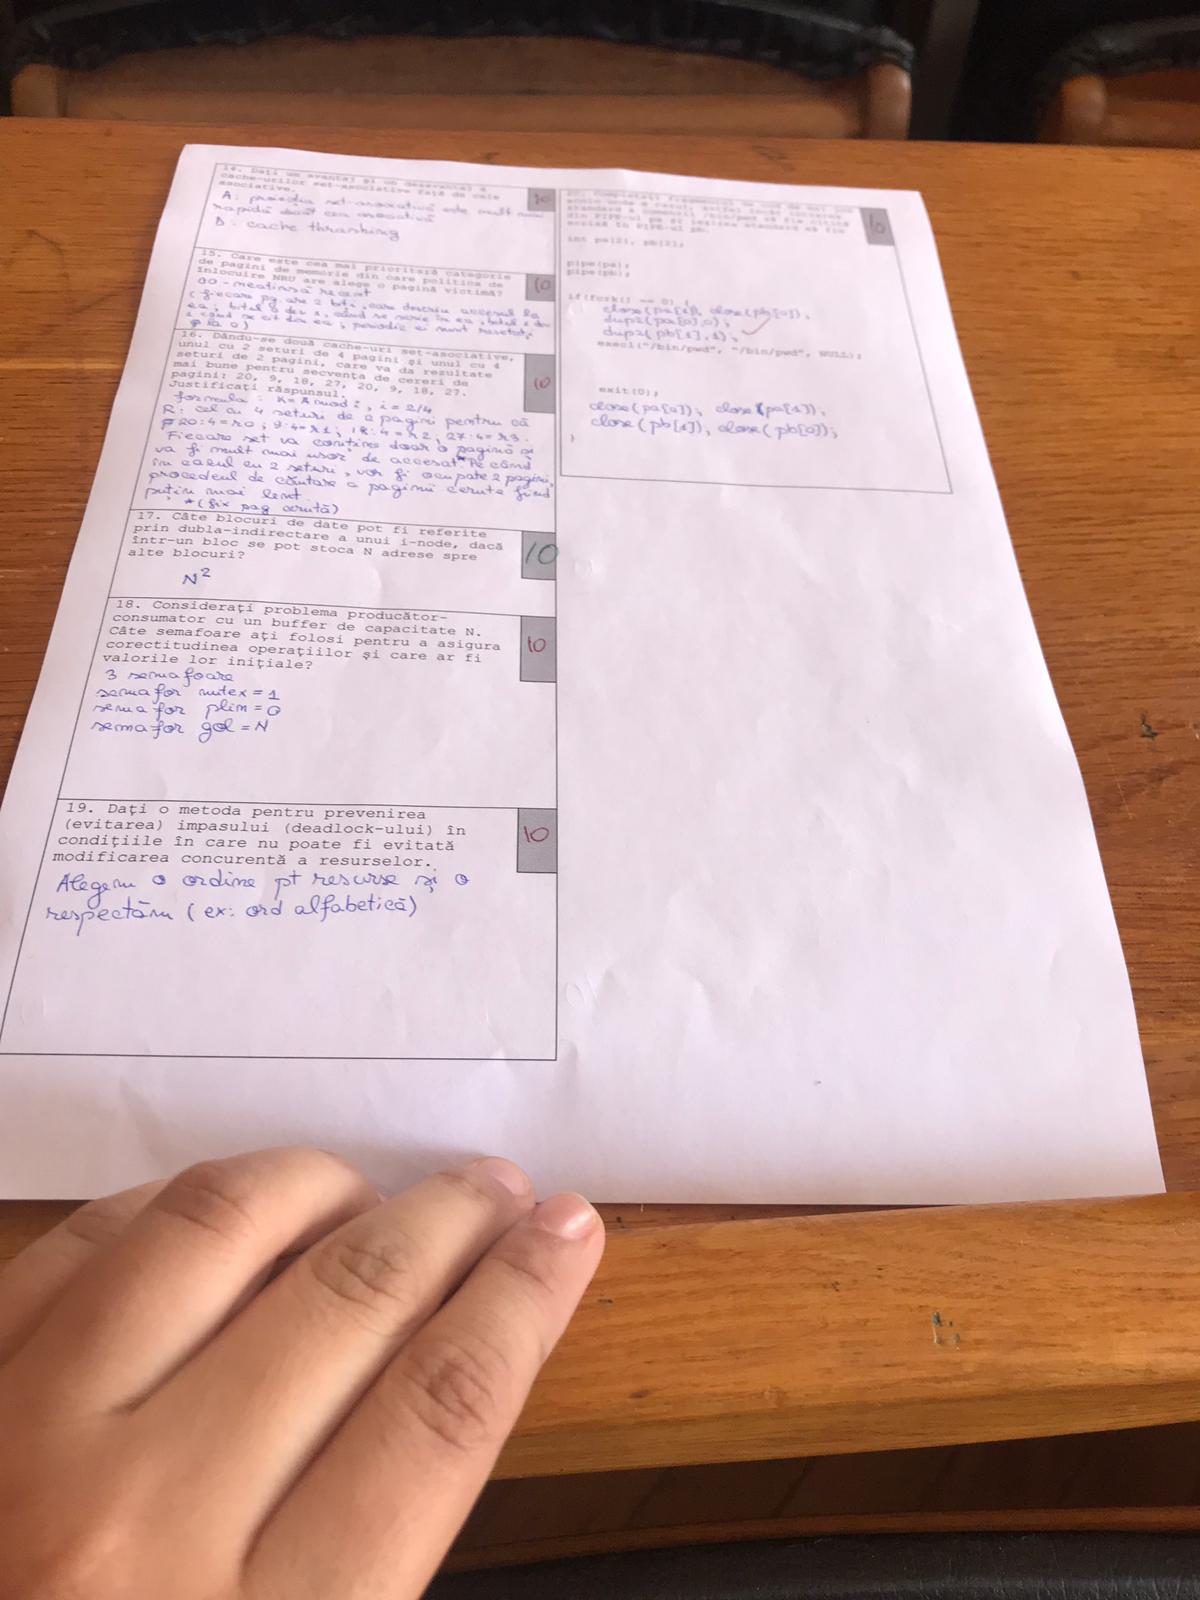 14. Dați un avantaj și un dezavantaj a
cache-urilor set-asociative față de cele
asociative.
10
A: proiecția set-asociativă este mult mai
rapidă decât cea asociativă
D: cache thrashing
15. Care este cea mai prioritară categorie
de pagini de memorie din care politica de
înlocuire NRU are alege o pagină victimă?
10
00 - neatinsă recent
(fiecare pg. are 2 biți, care descriu accesul la
ea; bitul dev 1, când se scrie în ea, bitul dev
1 când se cit din ea; periodic ei sunt resetați
la 0)
16. Dându-se două cache-uri set-asociative,
unul cu 2 seturi de 4 pagini și unul cu 4
seturi de 2 pagini, care va da rezultate
mai bune pentru secvența de cereri de
pagini: 20, 9, 18, 27, 20, 9, 18, 27.
Justificați răspunsul.
10
formula: K = A mod i, i = 2/4
R: cel cu 4 seturi de 2 pagini pentru că
20:4=r0; 9:4=r1; 18:4=r2; 27:4=r3.
Fiecare set va conține doar o pagină și
va fi mult mai ușor de accesat* Pe când
în cazul cu 2 seturi, vor fi ocupate 2 pagini,
procedeul de căutare a paginii cerute fiind
puțin mai lent.
*(fix pag cerută)
17. Câte blocuri de date pot fi referite
prin dubla-indirectare a unui i-node, dacă
într-un bloc se pot stoca N adrese spre
alte blocuri?
10
N²
18. Considerați problema producător-
consumator cu un buffer de capacitate N.
Câte semafoare ați folosi pentru a asigura
corectitudinea operațiilor și care ar fi
valorile lor inițiale?
10
3 semafoare
semafor mutex = 1
semafor plin = 0
semafor gol = N
19. Dați o metoda pentru prevenirea
(evitarea) impasului (deadlock-ului) în
condițiile în care nu poate fi evitată
modificarea concurentă a resurselor.
10
Alegem o ordine pt resurse și o
respectăm (ex: ord alfabetică)
20. Completați fragmentul de cod de mai jos
standard a comenzii /bin/pwd să fie citită
din PIPE-ul pa și ieșirea standard să fie
scrisă în PIPE-ul pb.
10
int pa[2], pb[2];
pipe(pa);
pipe(pb);
if(fork() == 0) {
close(pa[1]), close(pb[0]),
dup2(pa[0],0);
dup2(pb[1],1);
execl("/bin/pwd", "/bin/pwd", NULL);
exit(0);
close(pa[0]); close(pa[1]),
close(pb[1]), close(pb[0]);
}